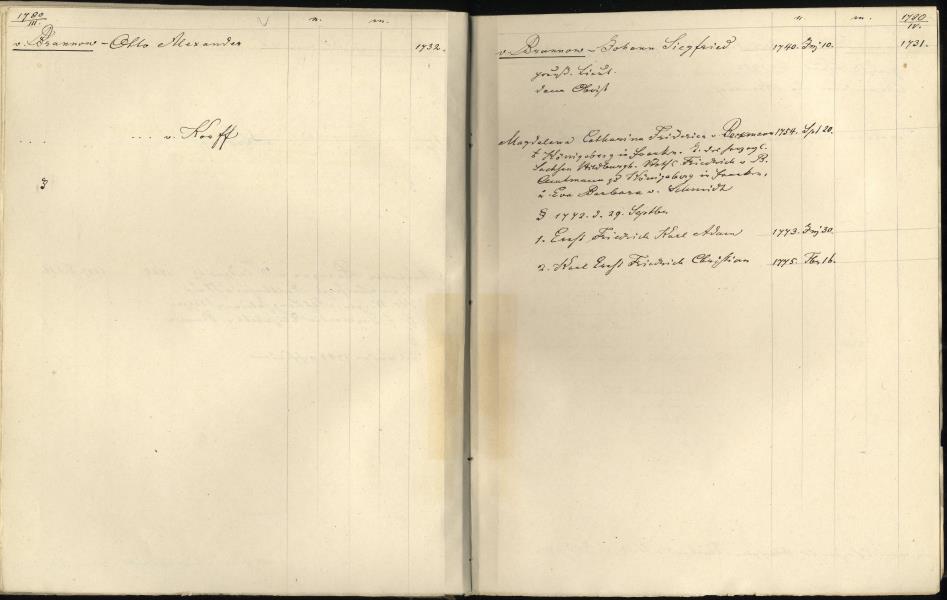 1780
III.
n.
m.
v. Brannow - Otto Alexander 1732.
... ... v. Korff
n.
m.
1780
IV.
v. Brannow - Johann Siegfried 1740. 10. 1731.
preuß. Lieut.
dann Obrist
Magdalena Catharina Friderica v. 1754. Spt 20.
Königsberg in Franken. T. des herzogl.
Sachsen Hildburgh. Friedrich v. B.
Amtmann zu Königsberg in Franken,
u. Eva Barbara v. Schmidt
1772. d. 29. Septber
1. Ernst Friedrich Karl Adam 1773. 30.
2. Karl Ernst Friedrich Christian 1775. 16.